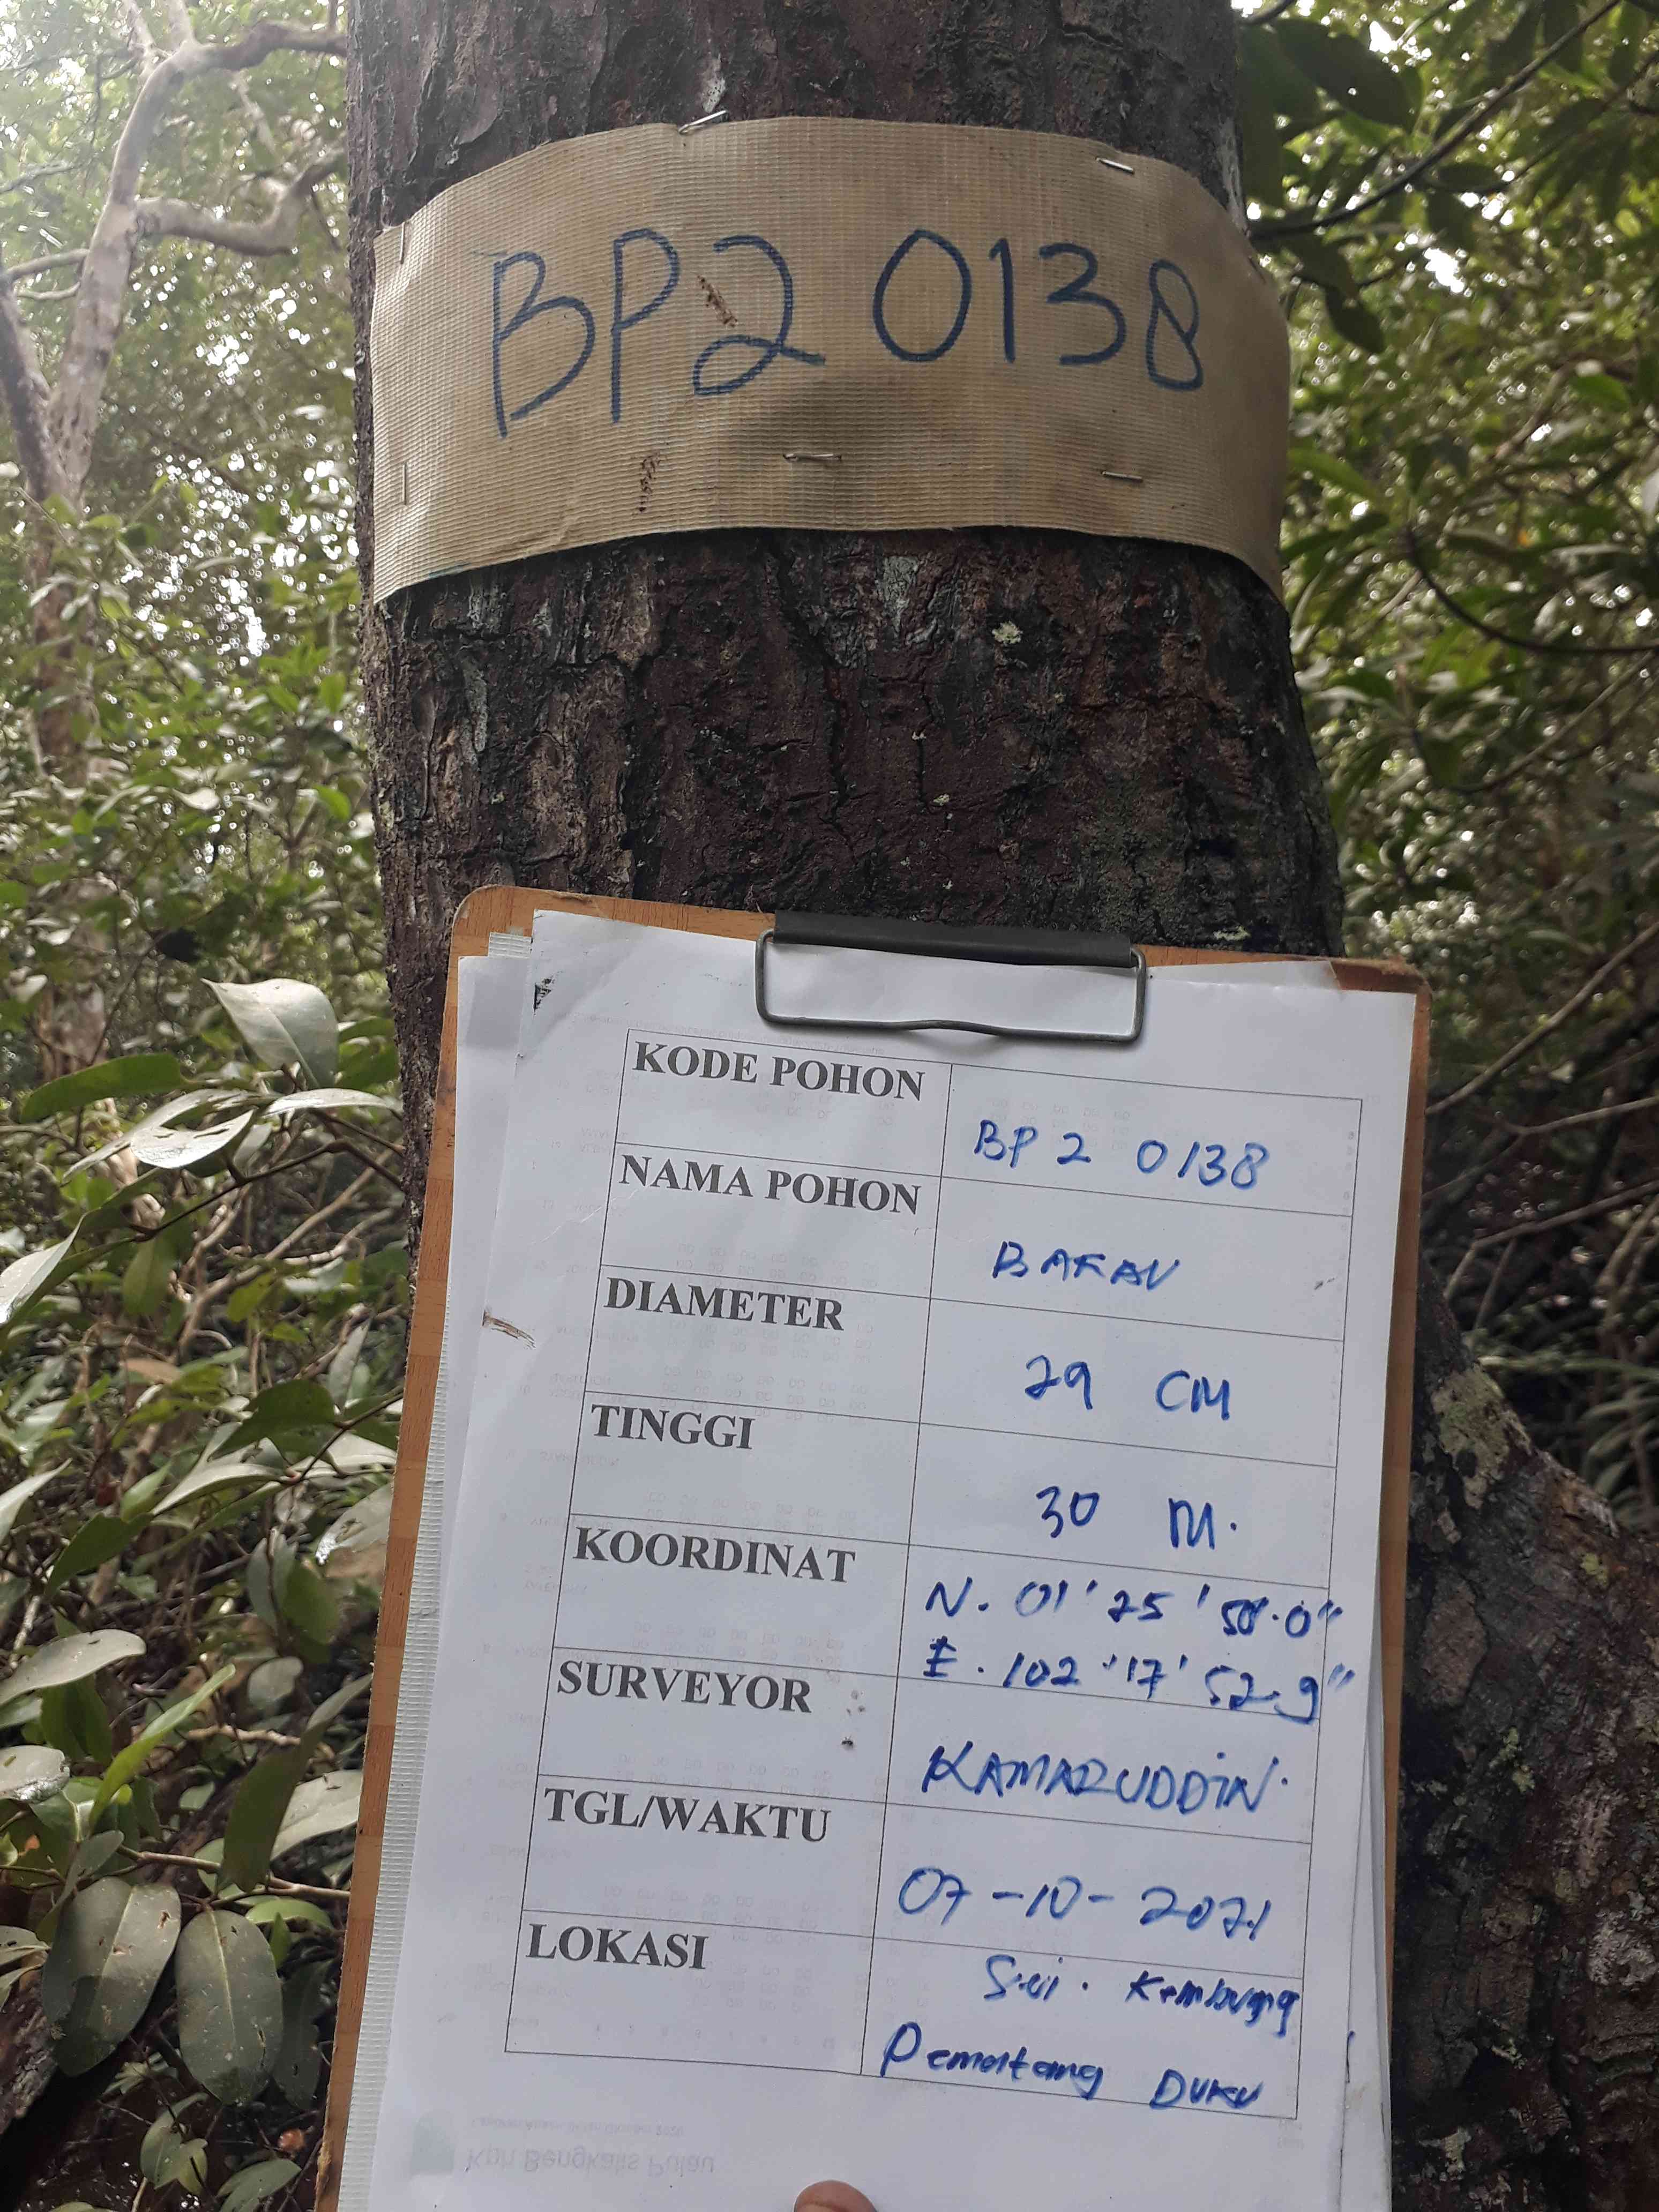 BP2 0138
KODE POHON BP2 0138
NAMA POHON BAKAU
DIAMETER 29 CM
TINGGI 30 M.
KOORDINAT N. 01, 25, 50.0"
E. 102, 17, 52.9"
SURVEYOR KAMARUDDIN.
TGL/WAKTU 07-10-2021
LOKASI
Pematang Duku
Kph Bengkalis Pulau